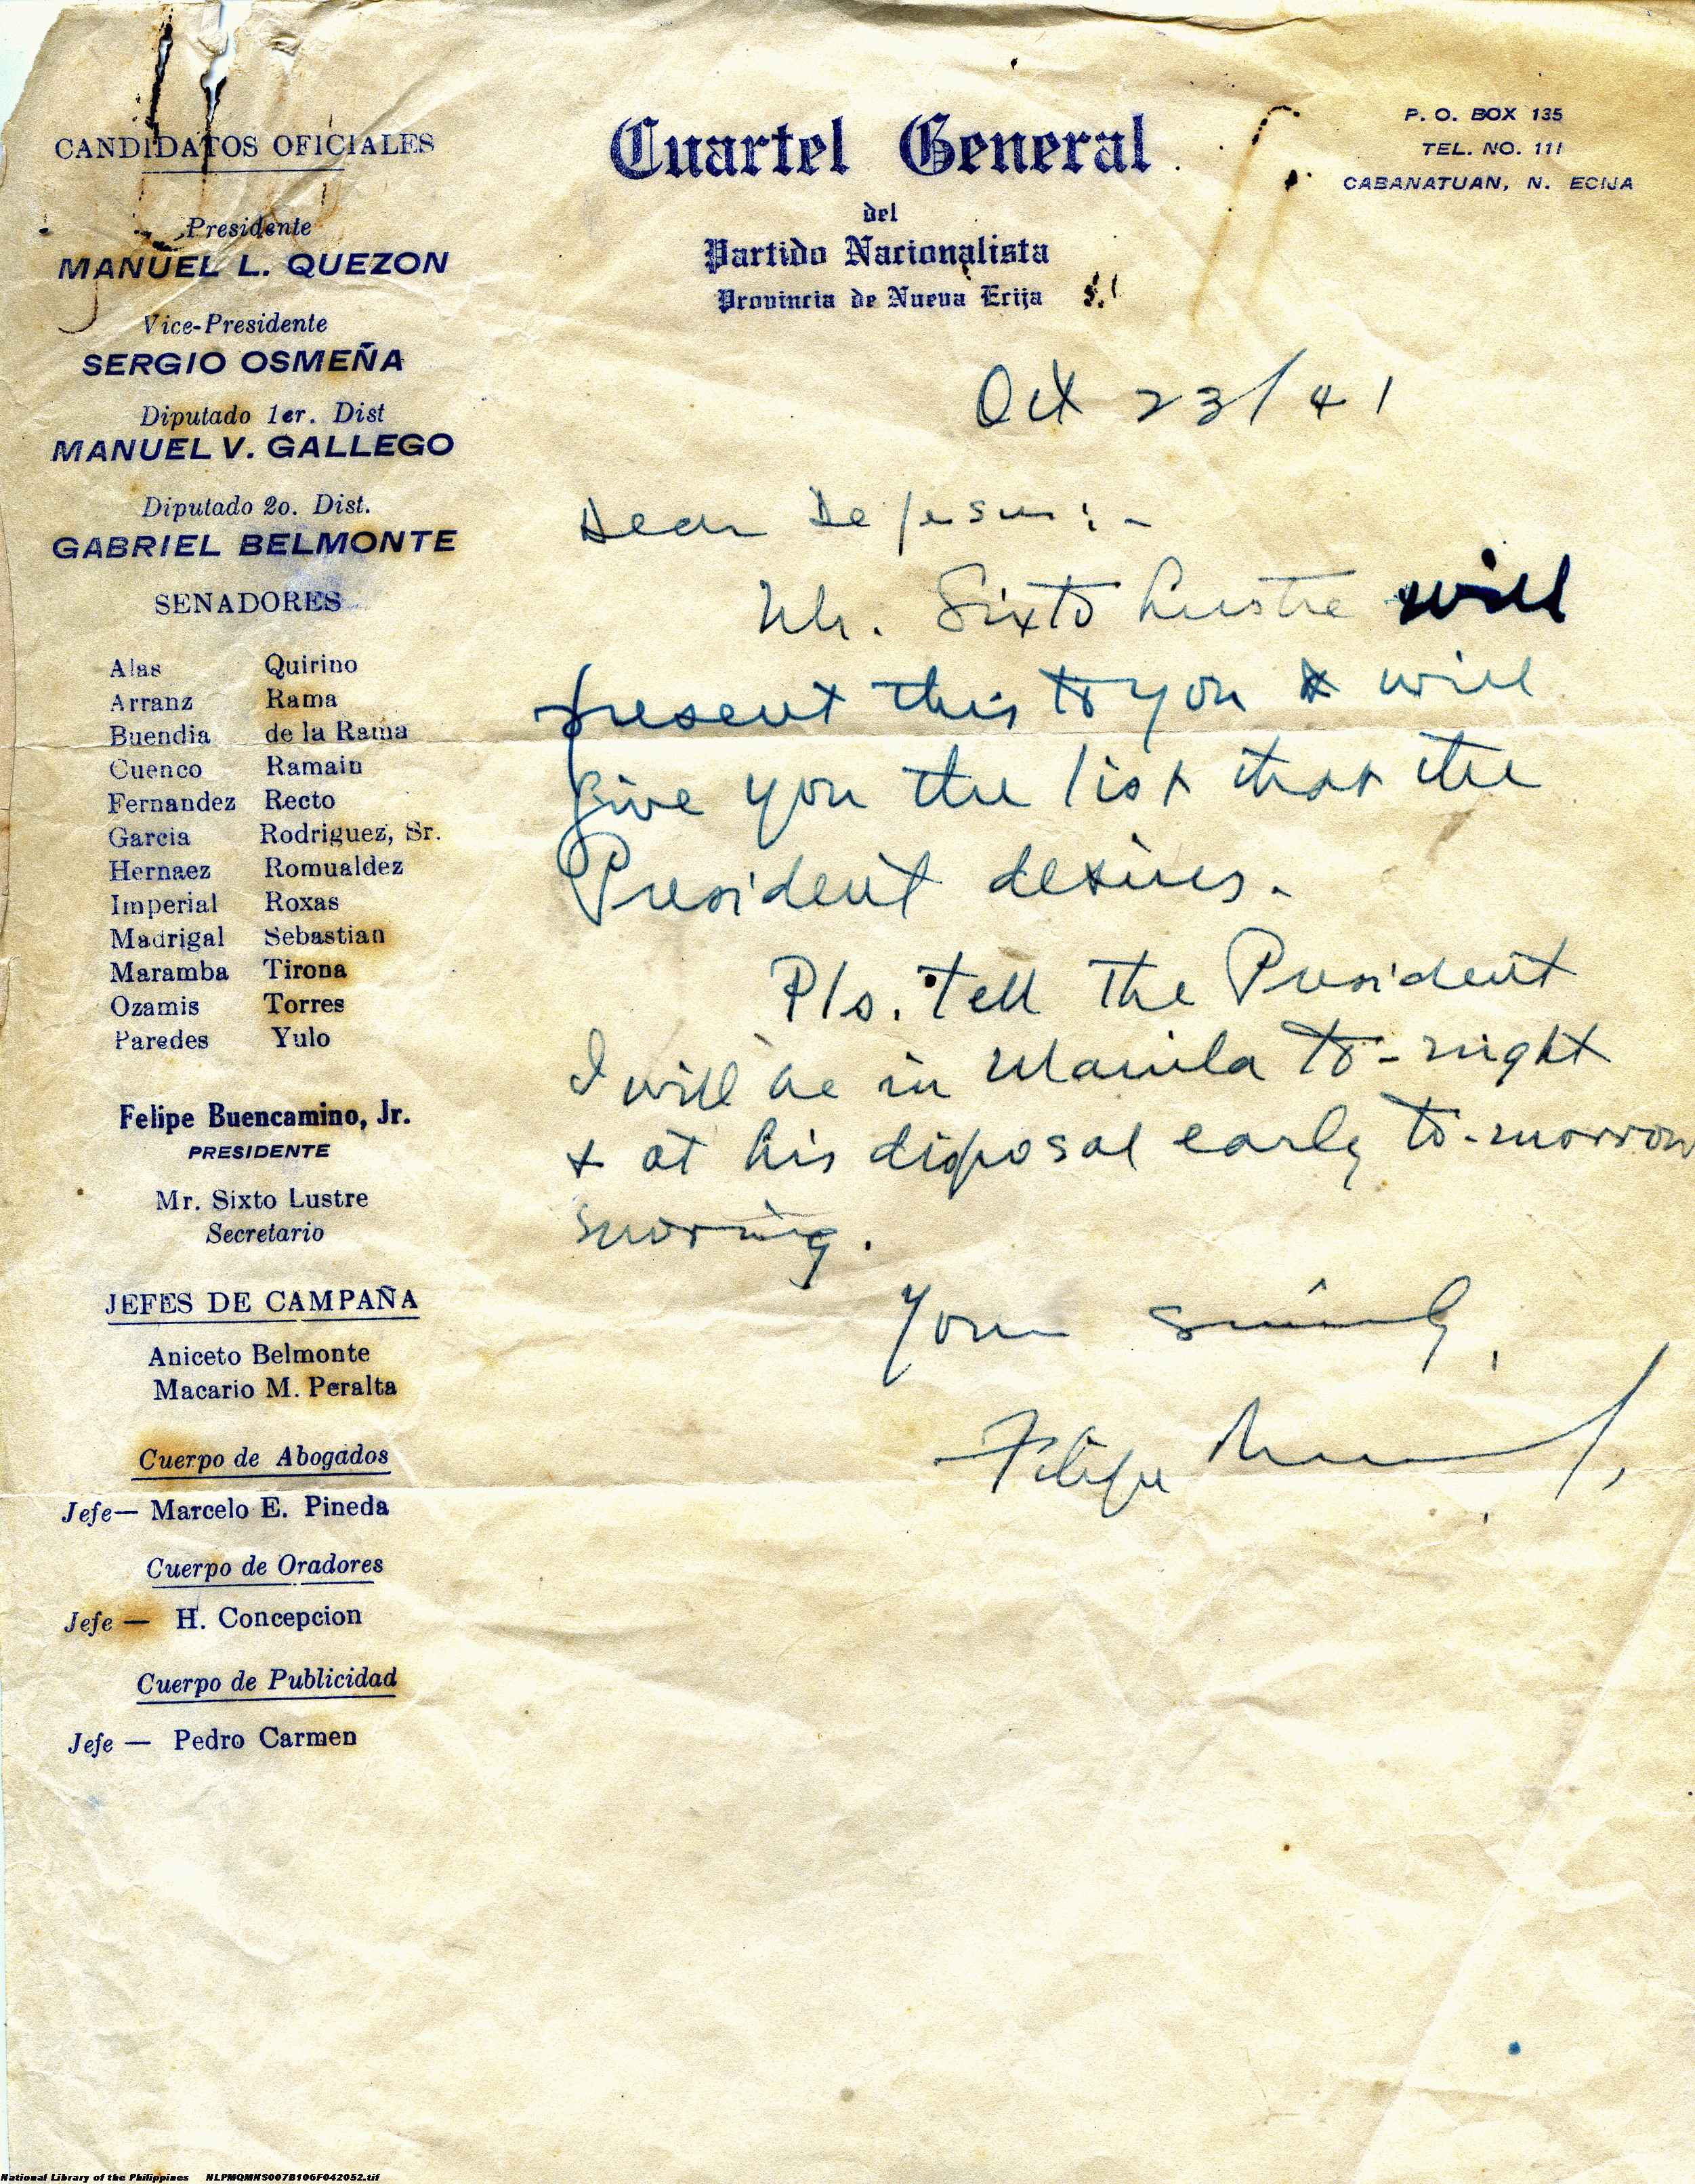 CANDIDATOS OFICIALES
Presidente
MANUEL L. QUEZON
Vice-Presidente
SERGIO OSMEÑA
Diputado 1er. Dist
MANUEL V. GALLEGO
Diputado 2o. Dist.
GABRIEL BELMONTE
SENADORES
Alas Quirino
Arranz Rama
Buendia de la Rama
Cuenco Ramain
Fernandez Recto
Garcia Rodriguez, Sr.
Hernaez Romualdez
Imperial Roxas
Madrigal Sebastian
Maramba Tirona
Ozamis Torres
Paredes Yulo
Felipe Buencamino, Jr.
PRESIDENTE
Mr. Sixto Lustre
Secretario
JEFES DE CAMPAÑA
Aniceto Belmonte
Macario M. Peralta
Cuerpo de Abogados
Jefe— Marcelo E. Pineda
Cuerpo de Oradores
Jefe — H. Concepcion
Cuerpo de Publicidad
Jefe — Pedro Carmen
Cuartel General
del
Partido Nacionalista
Provincia de Nueva Ecija
P. O. BOX 135
TEL. NO. 111
CABANATUAN, N. ECIJA
Oct 23/41
Dear De Jesus:-
Mr. Sixto Lustre will
present this to you & will
give you the list that the
President desires.
Pls. tell the President
I will be in Manila to-night
& at his disposal early to-morrow
morning.
Yours sincerely,
Felipe
National Library of the Philippines NLPMQMNS007B106F042052.tif